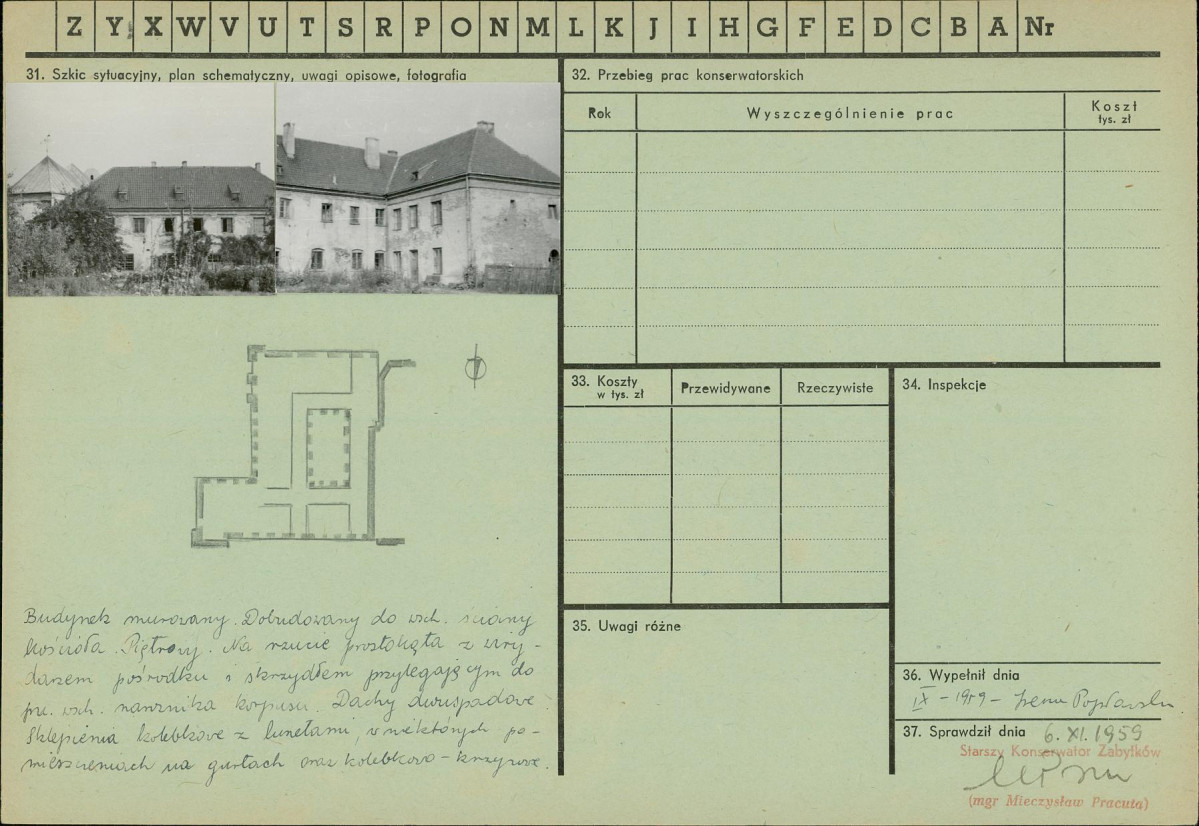 Z Y X W V U T S R P O N M L K J I H G F E D C B A Nr
31. Szkic sytuacyjny, plan schematyczny, uwagi opisowe, fotografia
Budynek murowany. Dobudowany do wsch. ściany
kościoła. Piętrowy. Na rzucie prostokąta z wiry-
darzem pośrodku i skrzydłem przylegającym do
wsch. narożnika korpusu. Dachy dwuspadowe.
Sklepienia kolebkowe z lunetami, w niektórych po-
mieszczeniach na gurtach oraz kolebkowo-krzyżowe.
32. Przebieg prac konserwatorskich
Rok
Wyszczególnienie prac
Koszt
tys. zł
33. Koszty
w tys. zł
Przewidywane
Rzeczywiste
34. Inspekcje
35. Uwagi różne
36. Wypełnił dnia
IX - 1959 - Irena Popławska
37. Sprawdził dnia 6.XI.1959
Starszy Konserwator Zabytków
(mgr Mieczysław Pracuta)